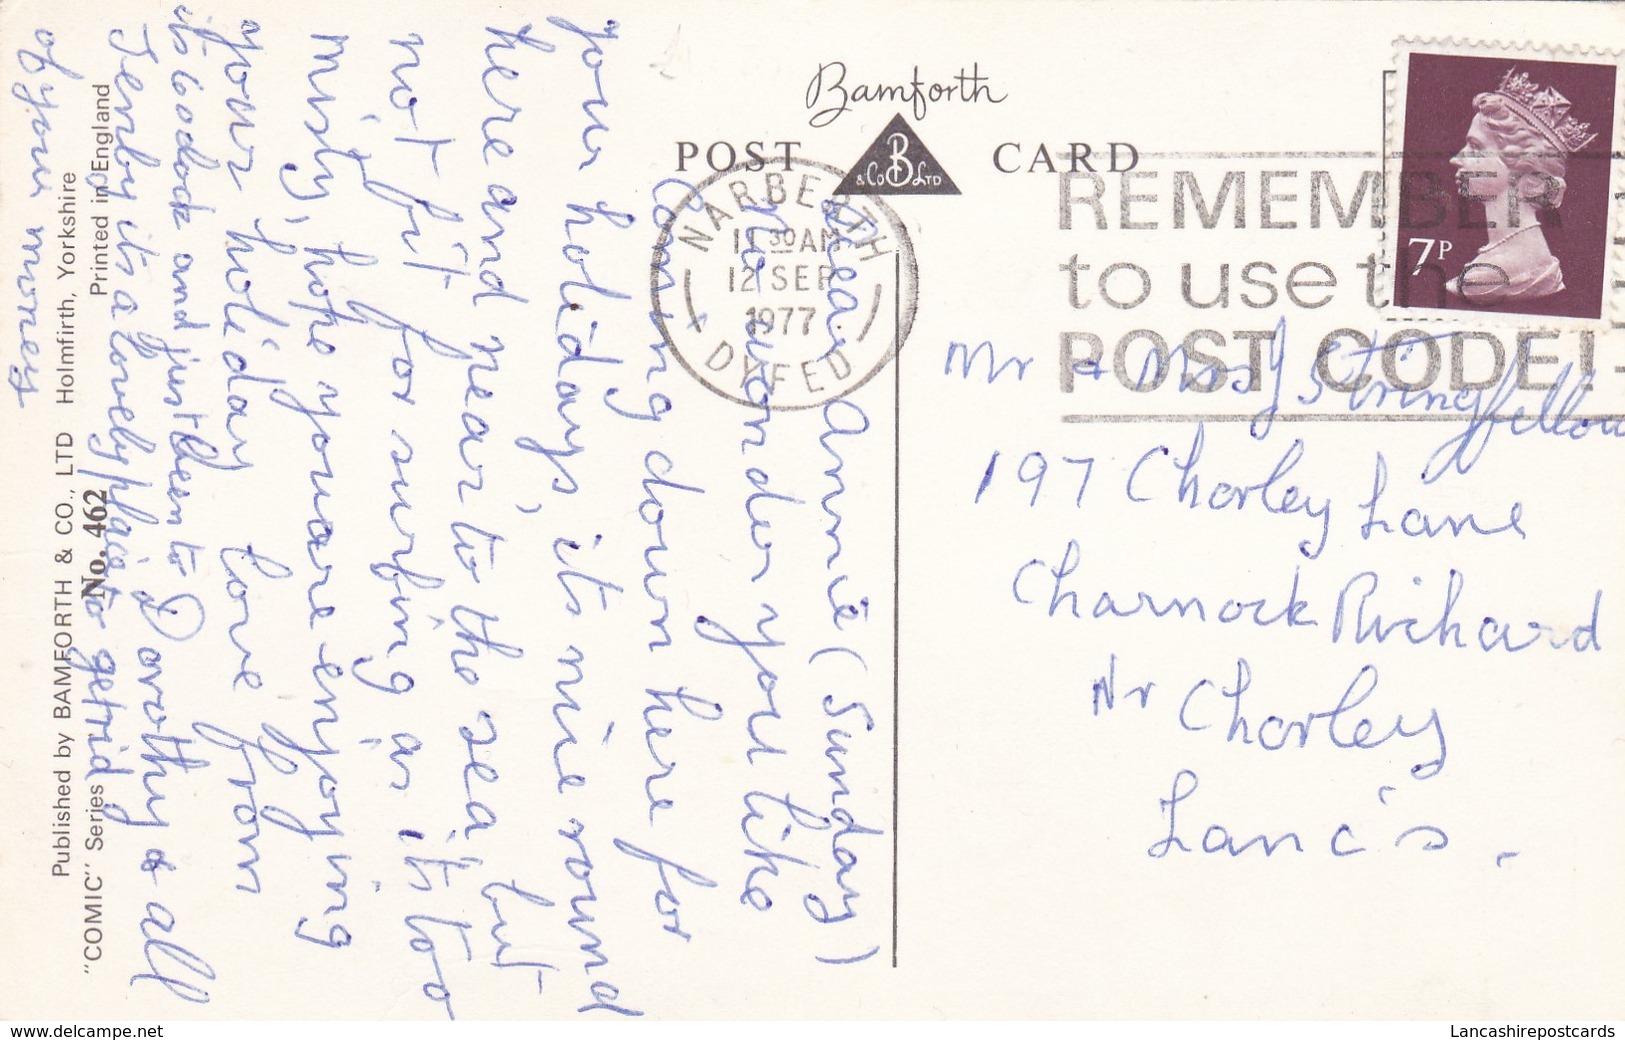 Bamforth
POST CARD
B
& Co LTD
NARBERTH
11 30 AM
12 SEP
1977
DYFED
REMEMBER
to use the
POST CODE!
7P
Mr & Mrs J Stringfellow
197 Chorley Lane
Charnock Richard
Nr Chorley
Lanc's.
Dear Annie (Sunday)
No wonder you like
coming down here for
your holidays, its nine round
here and near to the sea, but
not fit for surbing as it's too
misty, hope you are enjoying
your holiday love from
Dorothy & all
its 6 oclock and just been to
Tenby its a lovely place to get rid
of your moneys
Published by BAMFORTH & CO., LTD Holmfirth, Yorkshire
"COMIC" Series No. 462 Printed in England
www.delcampe.net
Lancashirepostcards